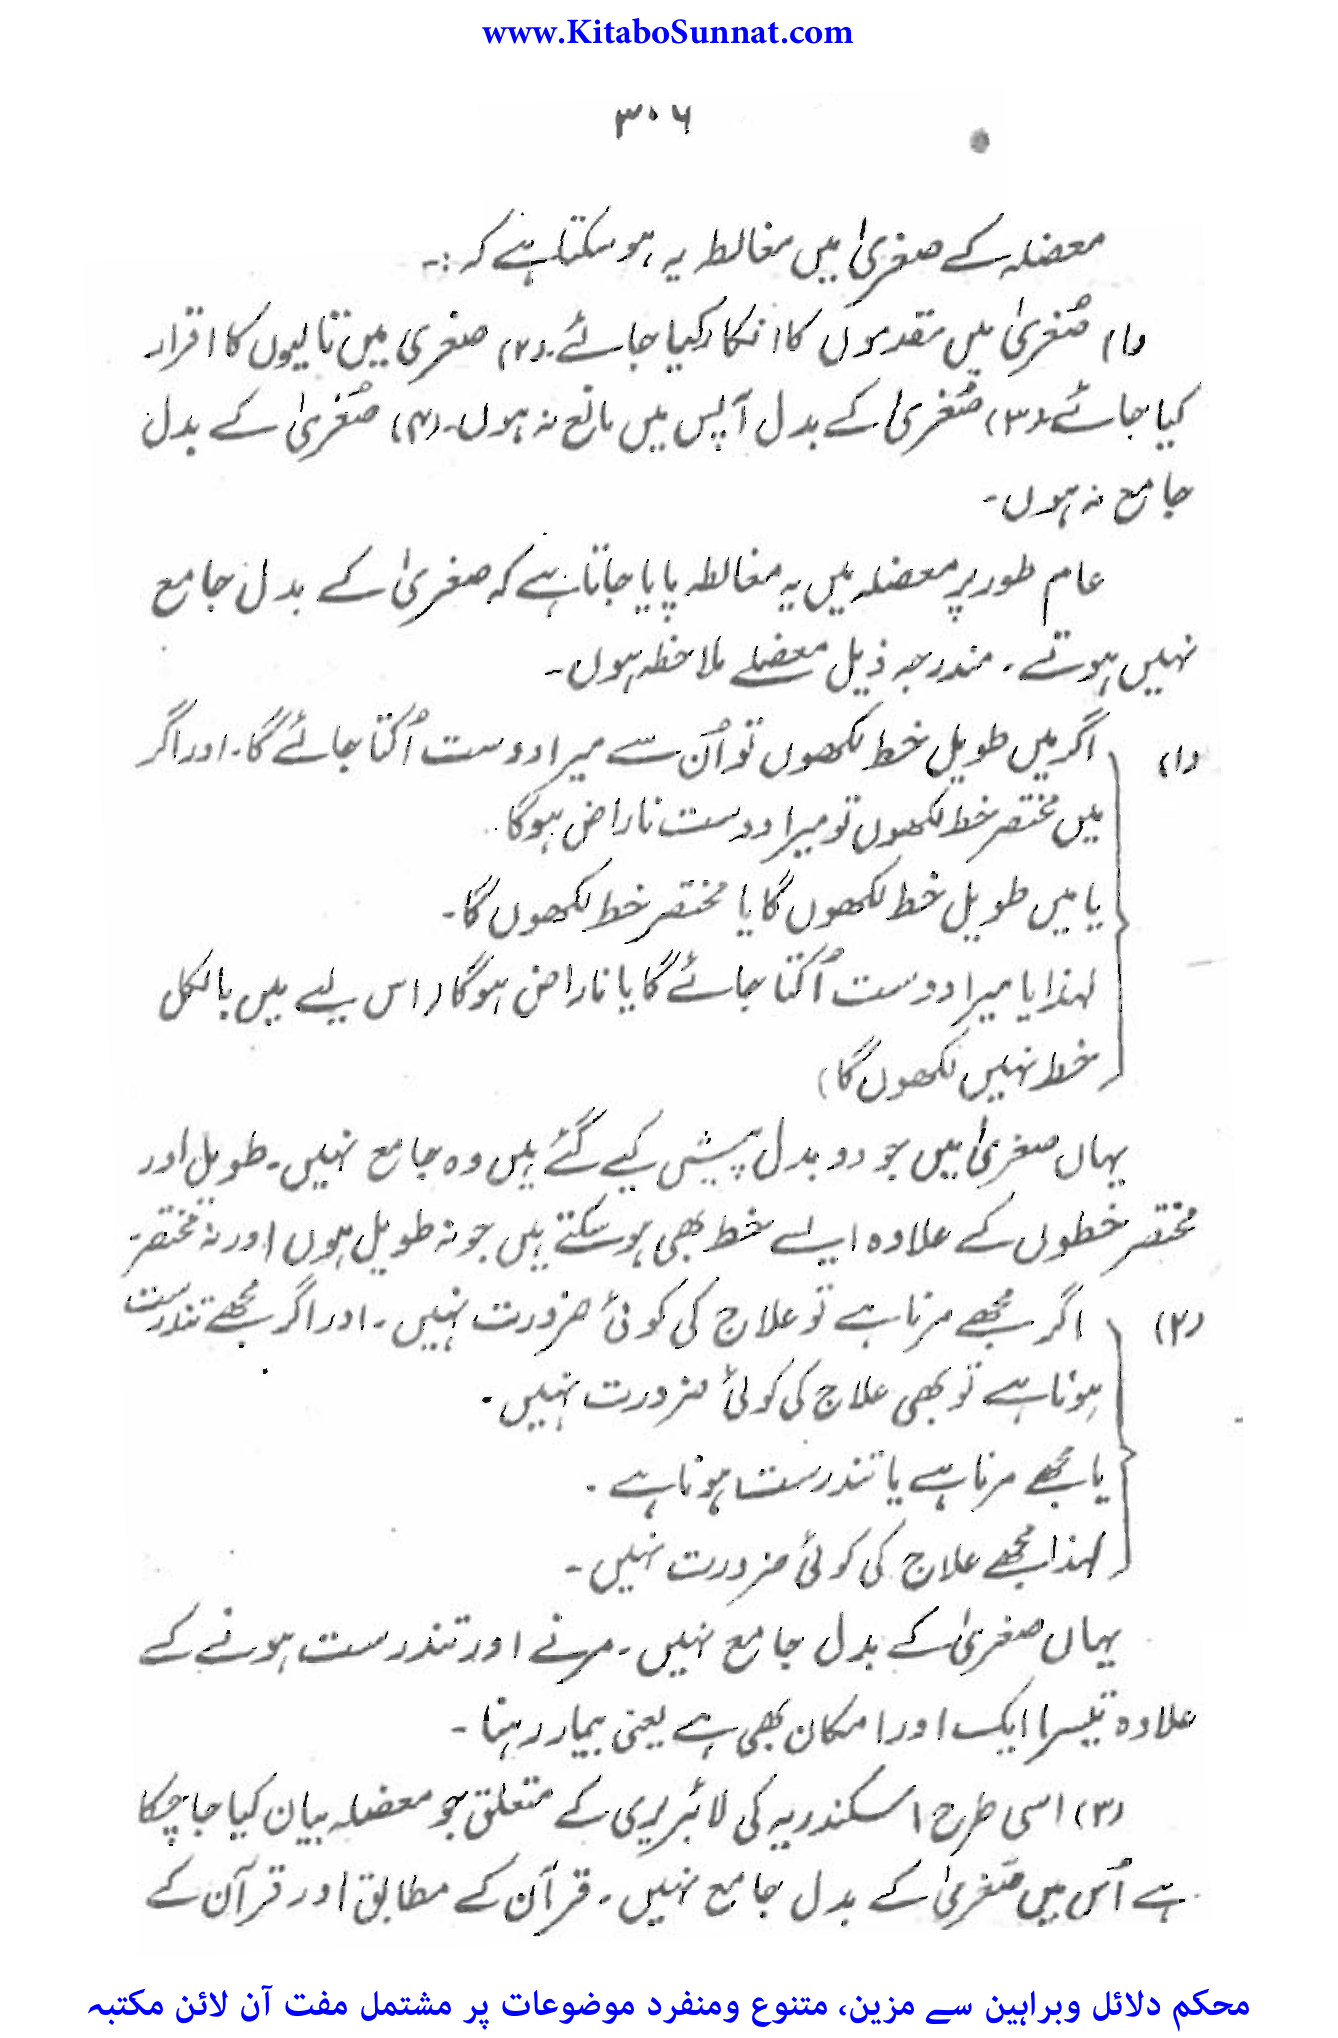 www.KitaboSunnat.com
۳۰۶
معضلہ کے صغریٰ میں مغالطہ یہ ہو سکتا ہے کہ :-
(۱) صُغریٰ میں مقدموں کا انکار کیا جائے۔ (۲) صغریٰ میں تالیوں کا اقرار
کیا جائے۔ (۳) صُغریٰ کے بدل آپس میں مانع نہ ہوں۔ (۴) صُغریٰ کے بدل
جامع نہ ہوں۔
عام طور پر معضلہ میں یہ مغالطہ پایا جاتا ہے کہ صغریٰ کے بدل جامع
نہیں ہوتے۔ مندرجہ ذیل معضلے ملاحظہ ہوں۔
(۱) اگر میں طویل خط لکھوں تو اُن سے میرا دوست اُکتا جائے گا۔ اور اگر
میں مختصر خط لکھوں تو میرا دوست ناراض ہوگا۔
یا میں طویل خط لکھوں گا یا مختصر خط لکھوں گا۔
لہذا یا میرا دوست اُکتا جائے گا یا ناراض ہوگا (اس لیے میں بالکل
خط نہیں لکھوں گا)
یہاں صغریٰ میں جو دو بدل پیش کیے گئے ہیں وہ جامع نہیں۔ طویل اور
مختصر خطوں کے علاوہ ایسے خط بھی ہو سکتے ہیں جو نہ طویل ہوں اور نہ مختصر۔
(۲) اگر مجھے مرنا ہے تو علاج کی کوئی ضرورت نہیں۔ اور اگر مجھے تندرست
ہونا ہے تو بھی علاج کی کوئی ضرورت نہیں۔
یا مجھے مرنا ہے یا تندرست ہونا ہے۔
لہذا مجھے علاج کی کوئی ضرورت نہیں۔
یہاں صغریٰ کے بدل جامع نہیں۔ مرنے اور تندرست ہونے کے
علاوہ تیسرا ایک اور امکان بھی ہے یعنی بیمار رہنا۔
(۳) اسی طرح اسکندریہ کی لائبریری کے متعلق جو معضلہ بیان کیا جا چکا
ہے اُس میں صُغریٰ کے بدل جامع نہیں۔ قرآن کے مطابق اور قرآن کے
محکم دلائل وبراہین سے مزین، متنوع ومنفرد موضوعات پر مشتمل مفت آن لائن مکتبہ